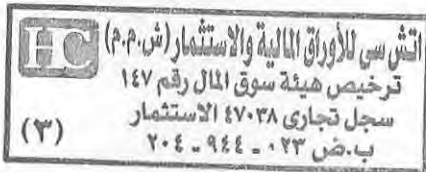 اتش سي للأوراق المالية والاستثمار (ش.م.م)
HC
ترخيص هيئة سوق المال رقم ١٤٧
سجل تجارى ٤٧٠٣٨ الاستثمار
ب.ض ٠٢٣ - ٩٤٤ - ٢٠٤
(٣)